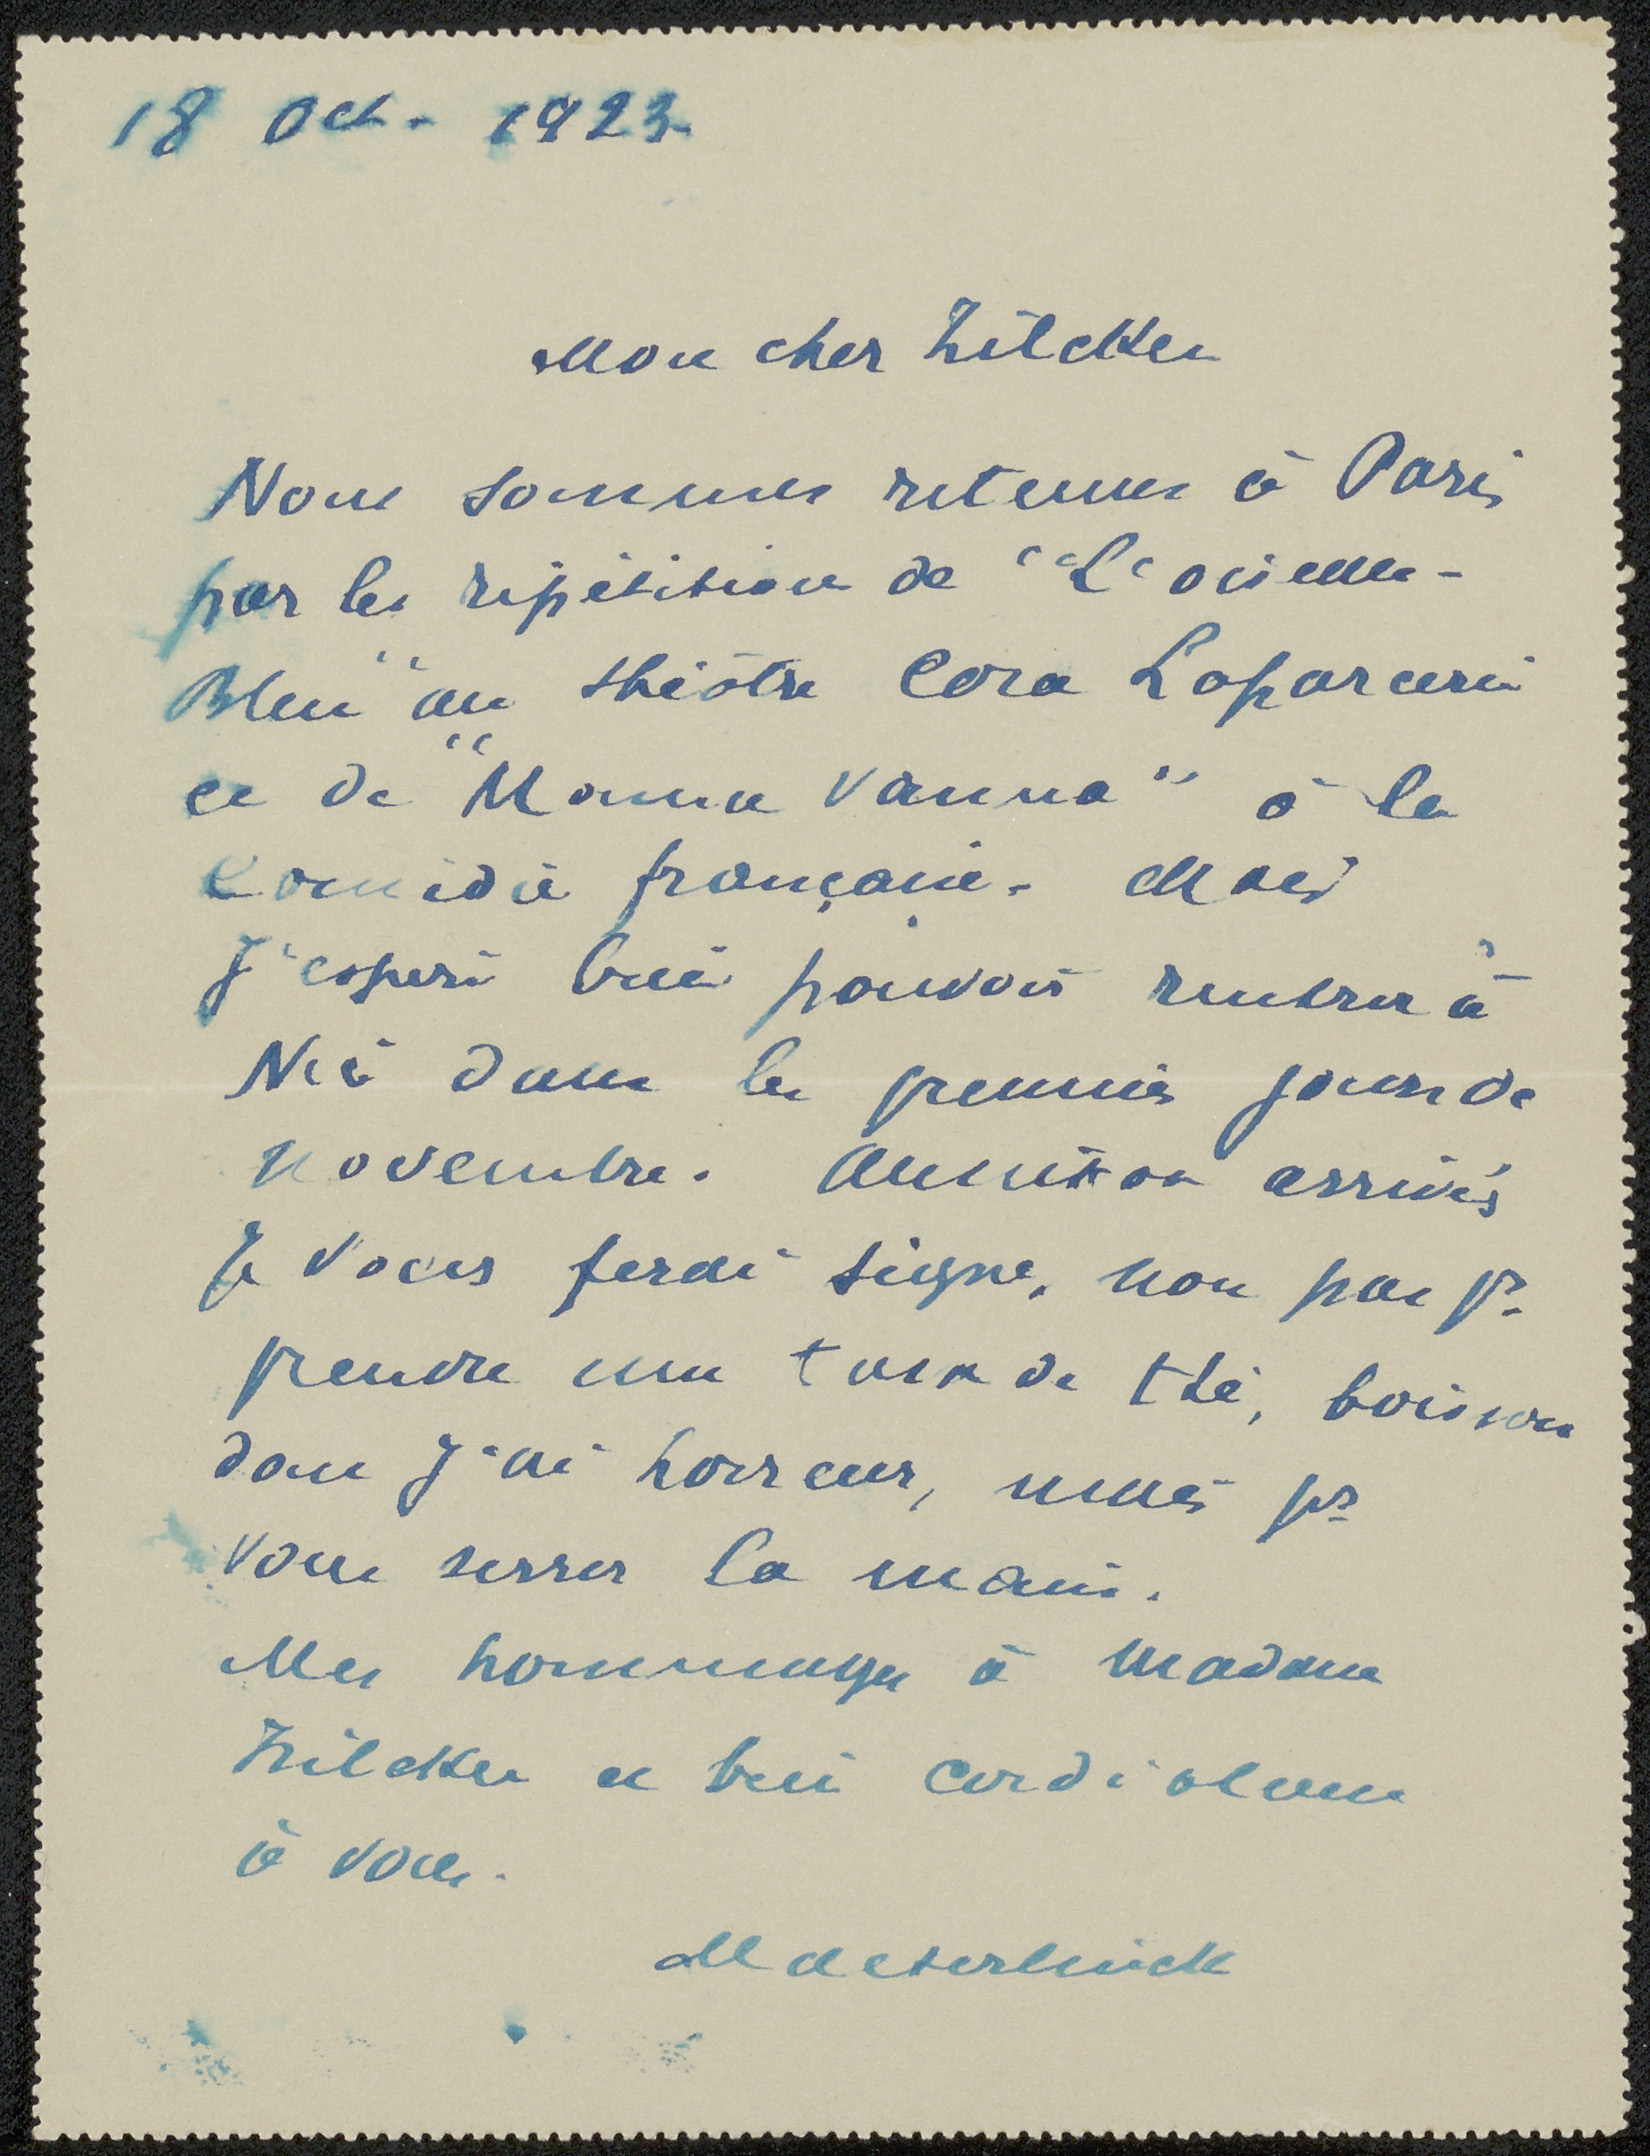 18 Oct. 1923
Mon cher Zilcken
Nous sommes retenus à Paris
par les répétitions de "L'oiseau-
Bleu" au théâtre Cora Laparcerie
et de "Monna Vanna" à la
Comédie française. Mais
j'espère bien pouvoir rentrer à
Nice dans les premiers jours de
novembre. Aussitôt arrivés
je vous ferai signe, non pas pr
prendre une tasse de thé, boisson
dont j'ai horreur, mais pr
vous serrer la main.
Mes hommages à Madame
Zilcken et bien cordialement
à vous.
Maeterlinck